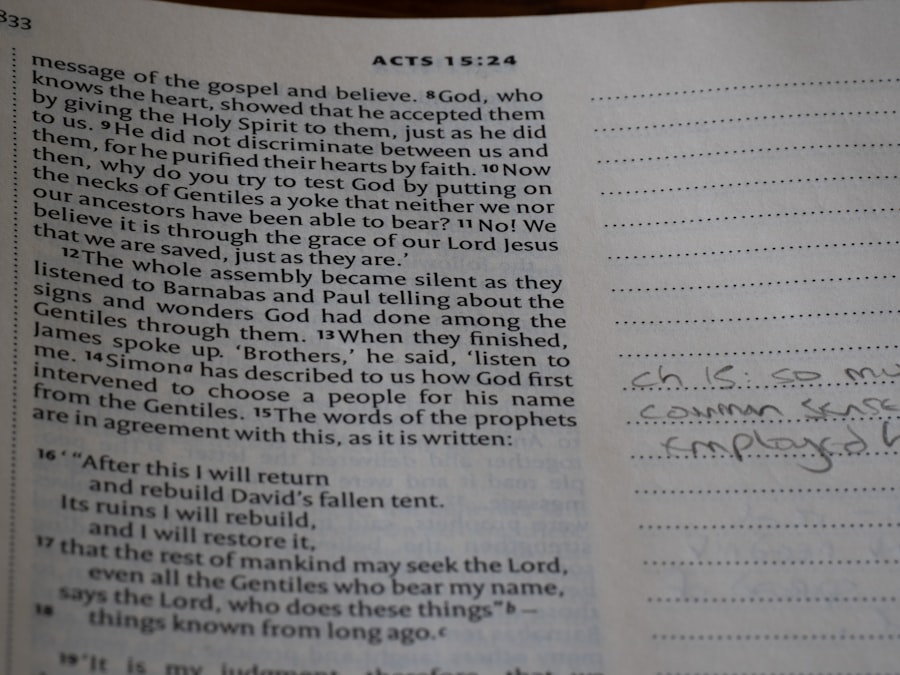 833
ACTS 15:24
message of the gospel and believe. 8God, who
knows the heart, showed that he accepted them
by giving the Holy Spirit to them, just as he did
to us. 9He did not discriminate between us and
them, for he purified their hearts by faith. 10Now
then, why do you try to test God by putting on
the necks of Gentiles a yoke that neither we nor
our ancestors have been able to bear? 11No! We
believe it is through the grace of our Lord Jesus
that we are saved, just as they are.’
12The whole assembly became silent as they
listened to Barnabas and Paul telling about the
signs and wonders God had done among the
Gentiles through them. 13When they finished,
James spoke up. ‘Brothers,’ he said, ‘listen to
me. 14Simona has described to us how God first
intervened to choose a people for his name
from the Gentiles. 15The words of the prophets
are in agreement with this, as it is written:
16‘“After this I will return
and rebuild David’s fallen tent.
Its ruins I will rebuild,
and I will restore it,
17that the rest of mankind may seek the Lord,
even all the Gentiles who bear my name,
says the Lord, who does these things”b –
18 things known from long ago.c
19‘It is my judgment, therefore, that we
ch 15: so mu
common sense
employed